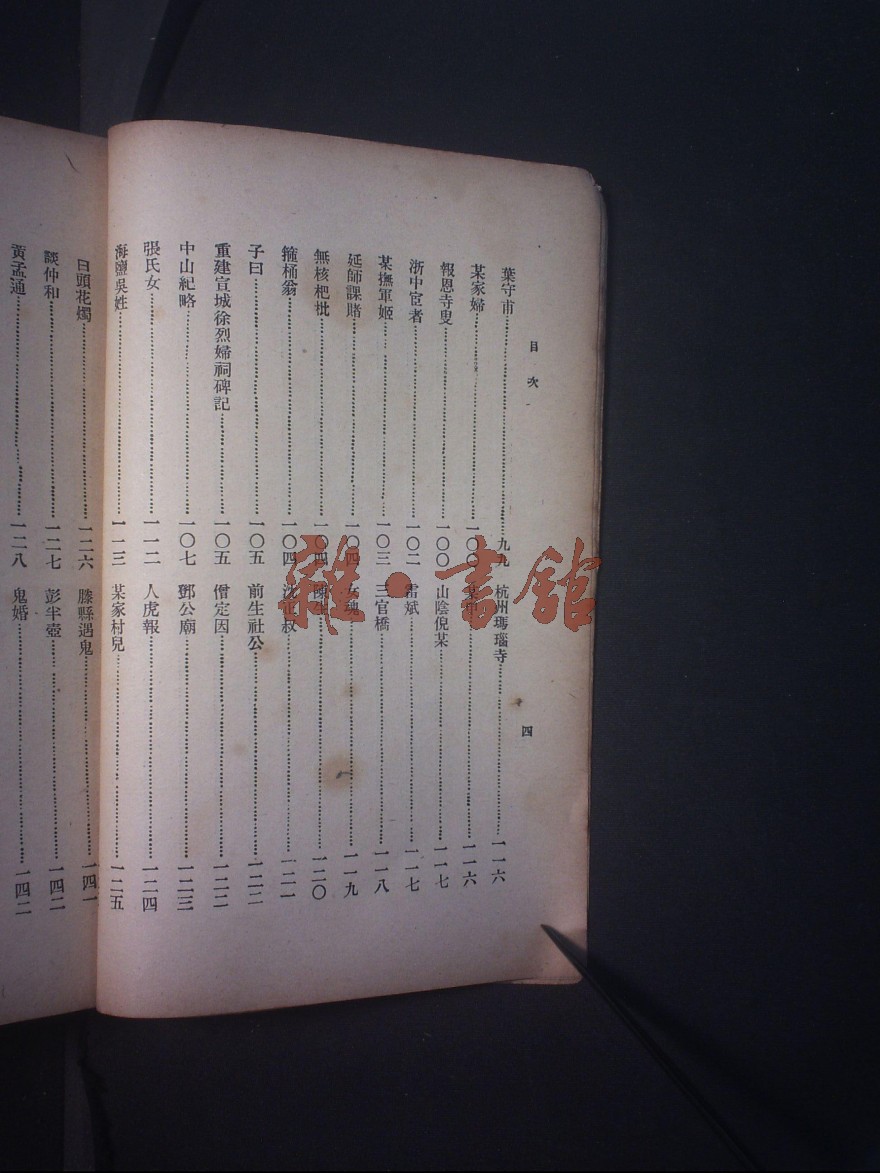 目次 四
葉守市……九九
某家婦……一〇〇
報恩寺叟……一〇〇
浙中宦者……一〇二
某撫軍姬……一〇三
延師課賭……一〇四
無核枇杷……一〇四
箍桶翁……一〇四
子曰……一〇五
重建宣城徐烈婦祠碑記……一〇五
中山紀略……一〇七
張氏女……一一二
海鹽吳姓……一一三
杭州瑪瑙寺……一一六
某甲……一一六
山陰倪某……一一七
雷斌……一一七
三官橋……一一八
女魂……一一九
陳生……一二〇
沈正叔……一二一
前生社公……一二二
僧定因……一二二
鄧公廟……一二三
人虎報……一二四
某家村兒……一二五
白頭花燭……一二六
談仲和……一二七
黃孟通……一二八
滕縣遇鬼……一四一
彭半壺……一四二
鬼婚……一四二
雜·書館